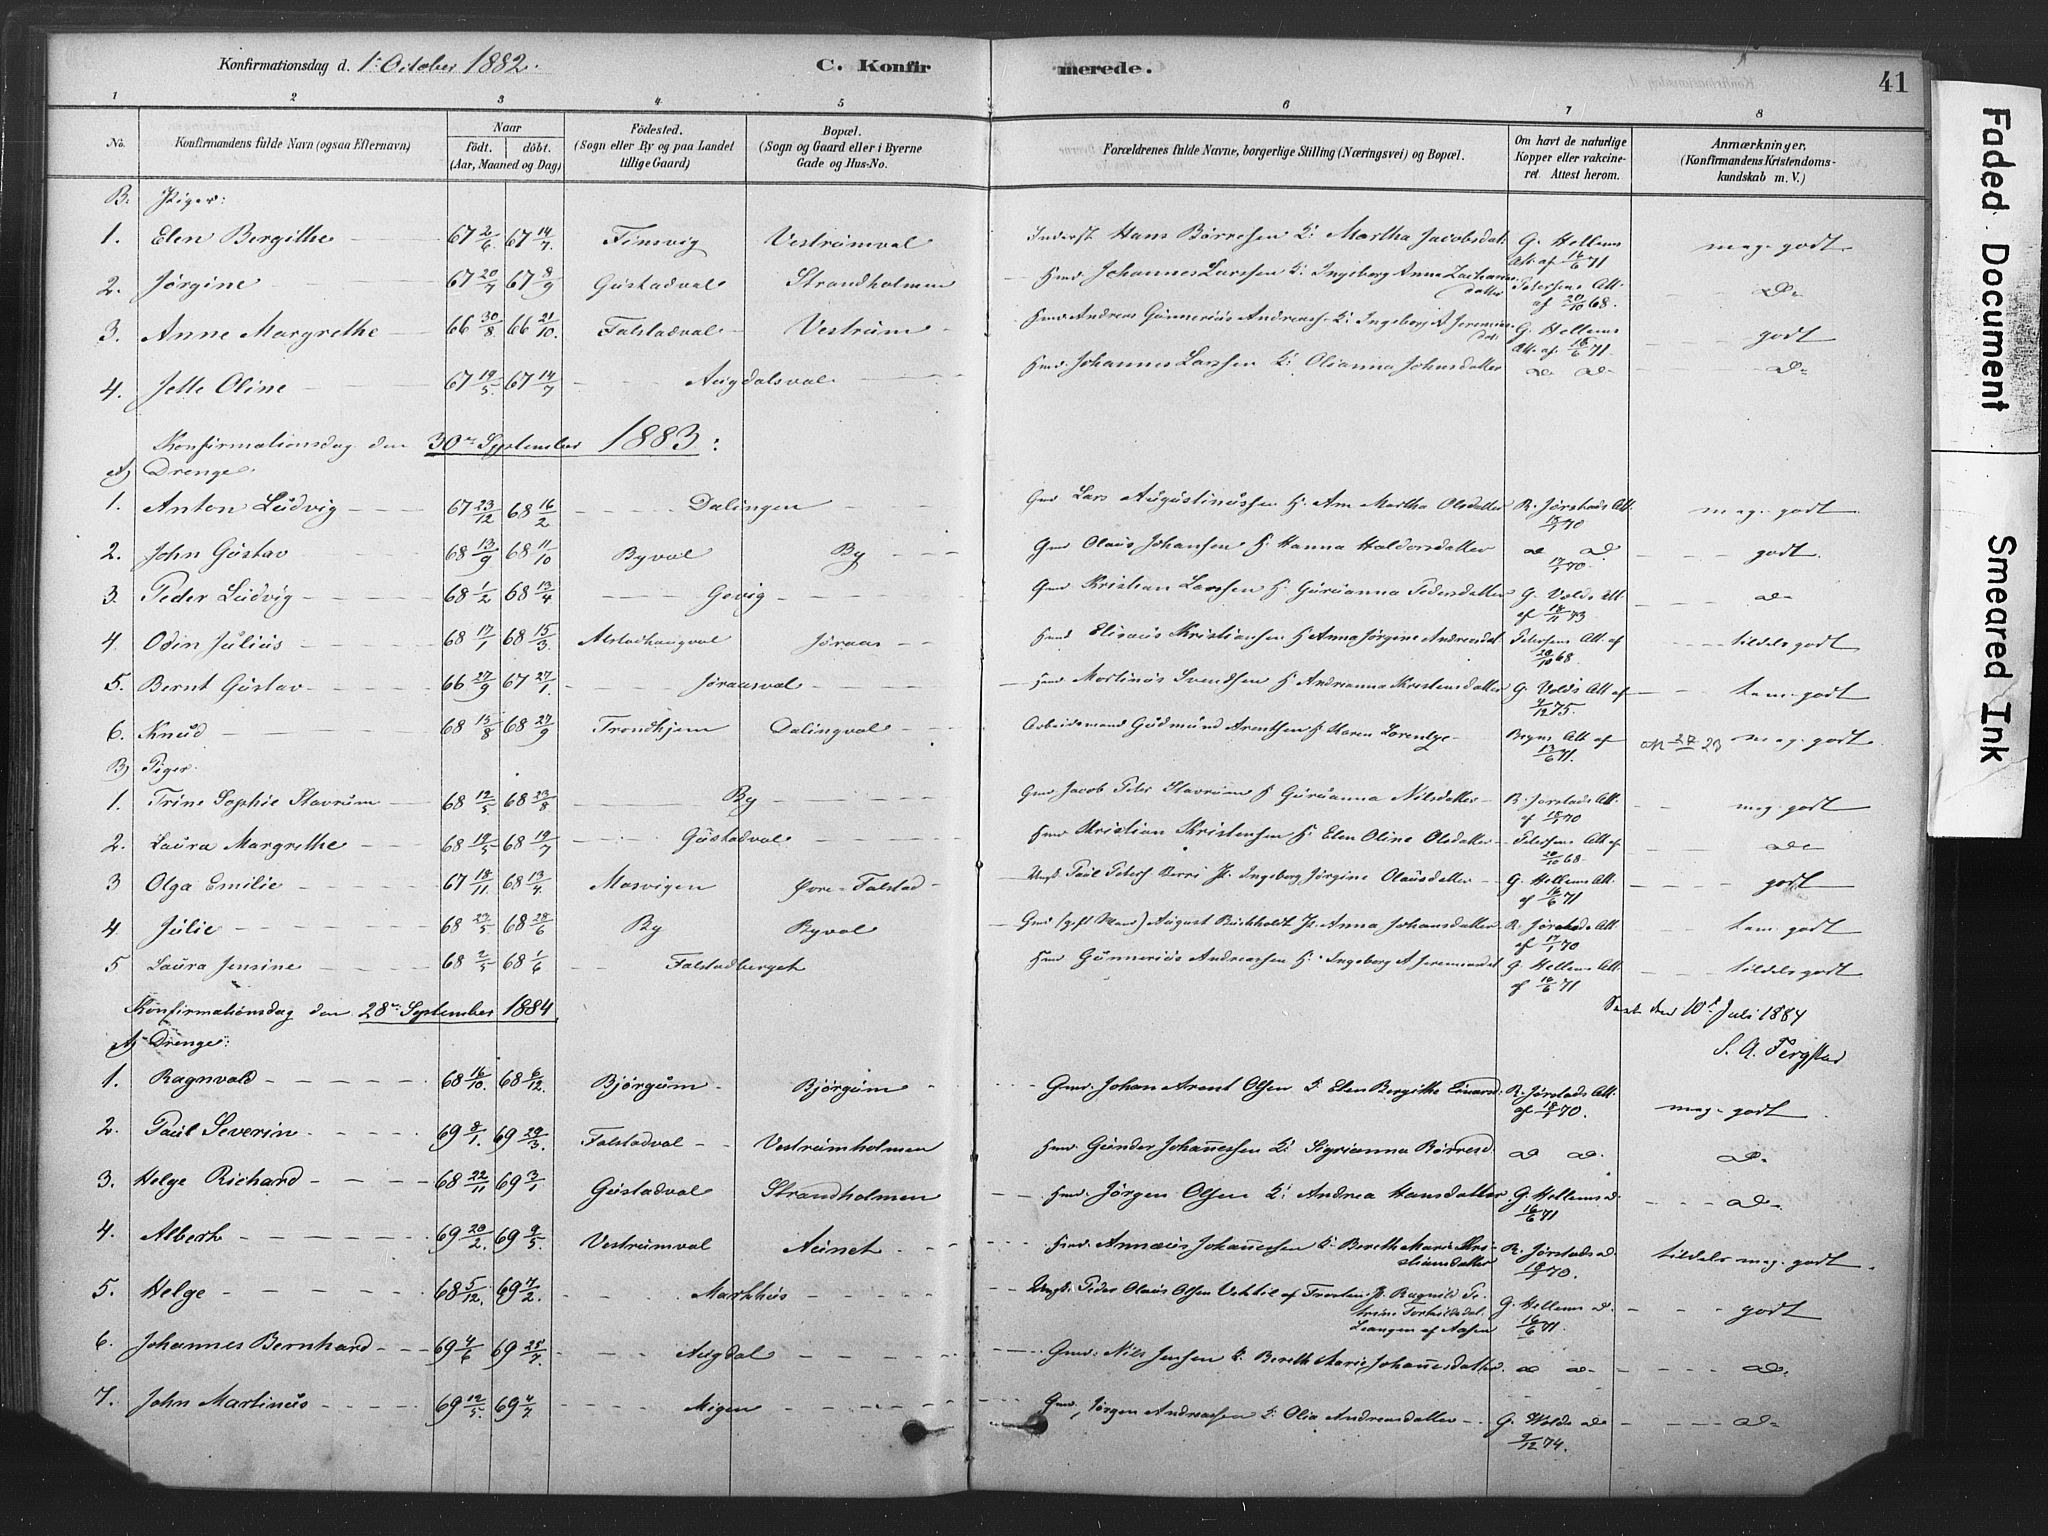 Konfirmationsdag d. 1ste October 1882. C. Konfirmerede. 41
1 2 3 4 5 6 7 8
No. Konfirmandens fulde Navn (ogsaa Efternavn) Naar Født. døbt. (Aar, Maaned og Dag) Fødested. (Sogn eller By og paa Landet tillige Gaard) Bopæl. (Sogn og Gaard eller i Byerne Gade og Hus-No. Forældrenes fulde Navne, borgerlige Stilling (Næringsvei) og Bopæl. Om havt de naturlige Kopper eller vakcineret. Attest herom. Anmærkninger, (Konfirmandens Kristendomskundskab m. V.)
B. Piger:
1. Elen Bergithe 67 2/6 67 14/7 Finsvig Vestrumval Inderst Hans Børresen K. Martha Jacobsdat. G. Hellems Att. af 16/6 71 meg. godt
2. Jørgine 67 20/7 67 8/9 Gustadval Strandholmen Hmd. Johannes Larssen K. Ingeborg Anna Zachariasdatter Petersens Att. af 20/10 68. ad-
3. Anne Margrethe 66 30/8 66 21/10 Falstadval Vestrum Hmd. Andreas Gunnerius Andreass. K. Ingeborg A. Jeremiasdat. G. Hellems Att. af 16/6 71 godt
4. Jette Oline 67 19/5 67 14/7 Augdalsval Hmd. Johannes Larssen K. Olianna Johnsdatter ad- ad- ad-
Konfirmationsdag den 30te September 1883:
A) Drenge.
1. Anton Ludvig 67 23/12 68 16/2 Dalingen Gmd Lars Augustinussen H. Ane Martha Olsdatter R. Jørstads Att. 18/1 70 meg. godt.
2. John Gustav 68 13/9 68 11/10 Byval By Gmd Olaus Johansen H. Hanna Haldorsdatter ad ad 17/1 70. godt.
3. Peder Ludvig 68 1/2 68 13/4 Gevig Gmd Kristian Larssen H. Gurianna Pedersdatter G. Volds Att. af 18/11 73 ad-
4. Odin Julius 68 17/1 68 15/3 Alstadhaugval Jøraas Hmd Elisæus Kristiansen H. Anna Jørgine Andreasdat Petersens Att af 20/10 68. tildels godt
5. Bernt Gustav 66 27/9 67 27/1. Jøraasval Hmd Mortinus Svendsen H. Andrianna Kristensdatter G. Volds Att af 4/12 75. tem. godt
6. Knud 68 15/8 68 27/9 Trondhjem Dalingval Arbeidsmand Gudmund Arentsen H. Karen Lorentze Brgns Att af 13/6 71. meg. godt.
B) Piger.
1. Trine Sophie Stavrum 68 12/5 68 23/8 By Gmd Jacob Peter Stavrum H. Gurianna Nilsdatter R. Jørstads Att. af 18/1 70 meg. godt
2. Laura Margrethe 68 19/5 68 19/7 Gustadval Hmd Kristian Kristensen H. Elen Oline Olsdatter Petersens Att af 20/10 68. ad-
3 Olga Emilie 67 18/11 68 13/4 Mosvigen Øvre-Falstad Ungk. Paul Peters. Berri P. Ingeborg Jørgine Olausdatter G. Hellems Att. af 16/6 71 godt
4. Julie 68 23/5 68 28/6 By Byval Gmd (gift Mand) August Buchholdt P. Anna Johansdatter R. Jørstads Att. af 17/1 70 tem. godt
5 Laura Jensine 68 2/5 68 1/6 Falstadberget Hmd Gunnerius Andreassen H. Ingeborg A Jeremiasdat G. Hellems Att. af 16/6 71 tildels godt
Konfirmationsdag den 28de September 1884. Seet den 10de Juli 1884
A) Drenge:
1. Ragnvald 68 16/10. 68 6/12. Bjørgum Bjørgum Gmd. Johan Arent Olsen K. Elen Bergithe Einarsd. R. Jørstads Att. af 18/1 70. meg. godt
2. Paul Severin 69 8/1. 69 29/3. Falstadval Vestrumholmen Hmd. Gunder Johannessen K. Sigrianna Børresd ad ad. ad-
3. Helge Richard 68 22/11 69 3/1 Gustadval Strandholmen Hmd. Jørgen Olsen K. Andrea Hansdatter G. Hellems a. 16/6 71 ad-
4. Albert 69 20/2. 69 9/5. Vestrumval Aunet Hmd. Annæus Johannessen K. Bereth Marie Kristiansdatter R. Jørstads a. 18/1 70. tildels meg. godt.
5. Helge 68 5/12. 69 7/2. Markhus Ungk. Peder Olaus Olsen af P. Ragnild Petrine Torkildsdat. Leangen af Aasen G. Hellems a. 16/6 71. godt
6. Johannes Bernhard 69 4/6 69 25/7. Augdal Gmd. Nils Jensen K. Bereth Marie Johannesdatter. ad ad- ad-
7. John Martinus 69 12/5. 69 4/7 Migen Gmd, Jørgen Andreassen K. Olia Andreasdatter G. Wolds a. 9/12 74. ad-
Faded Document
Smeared Ink